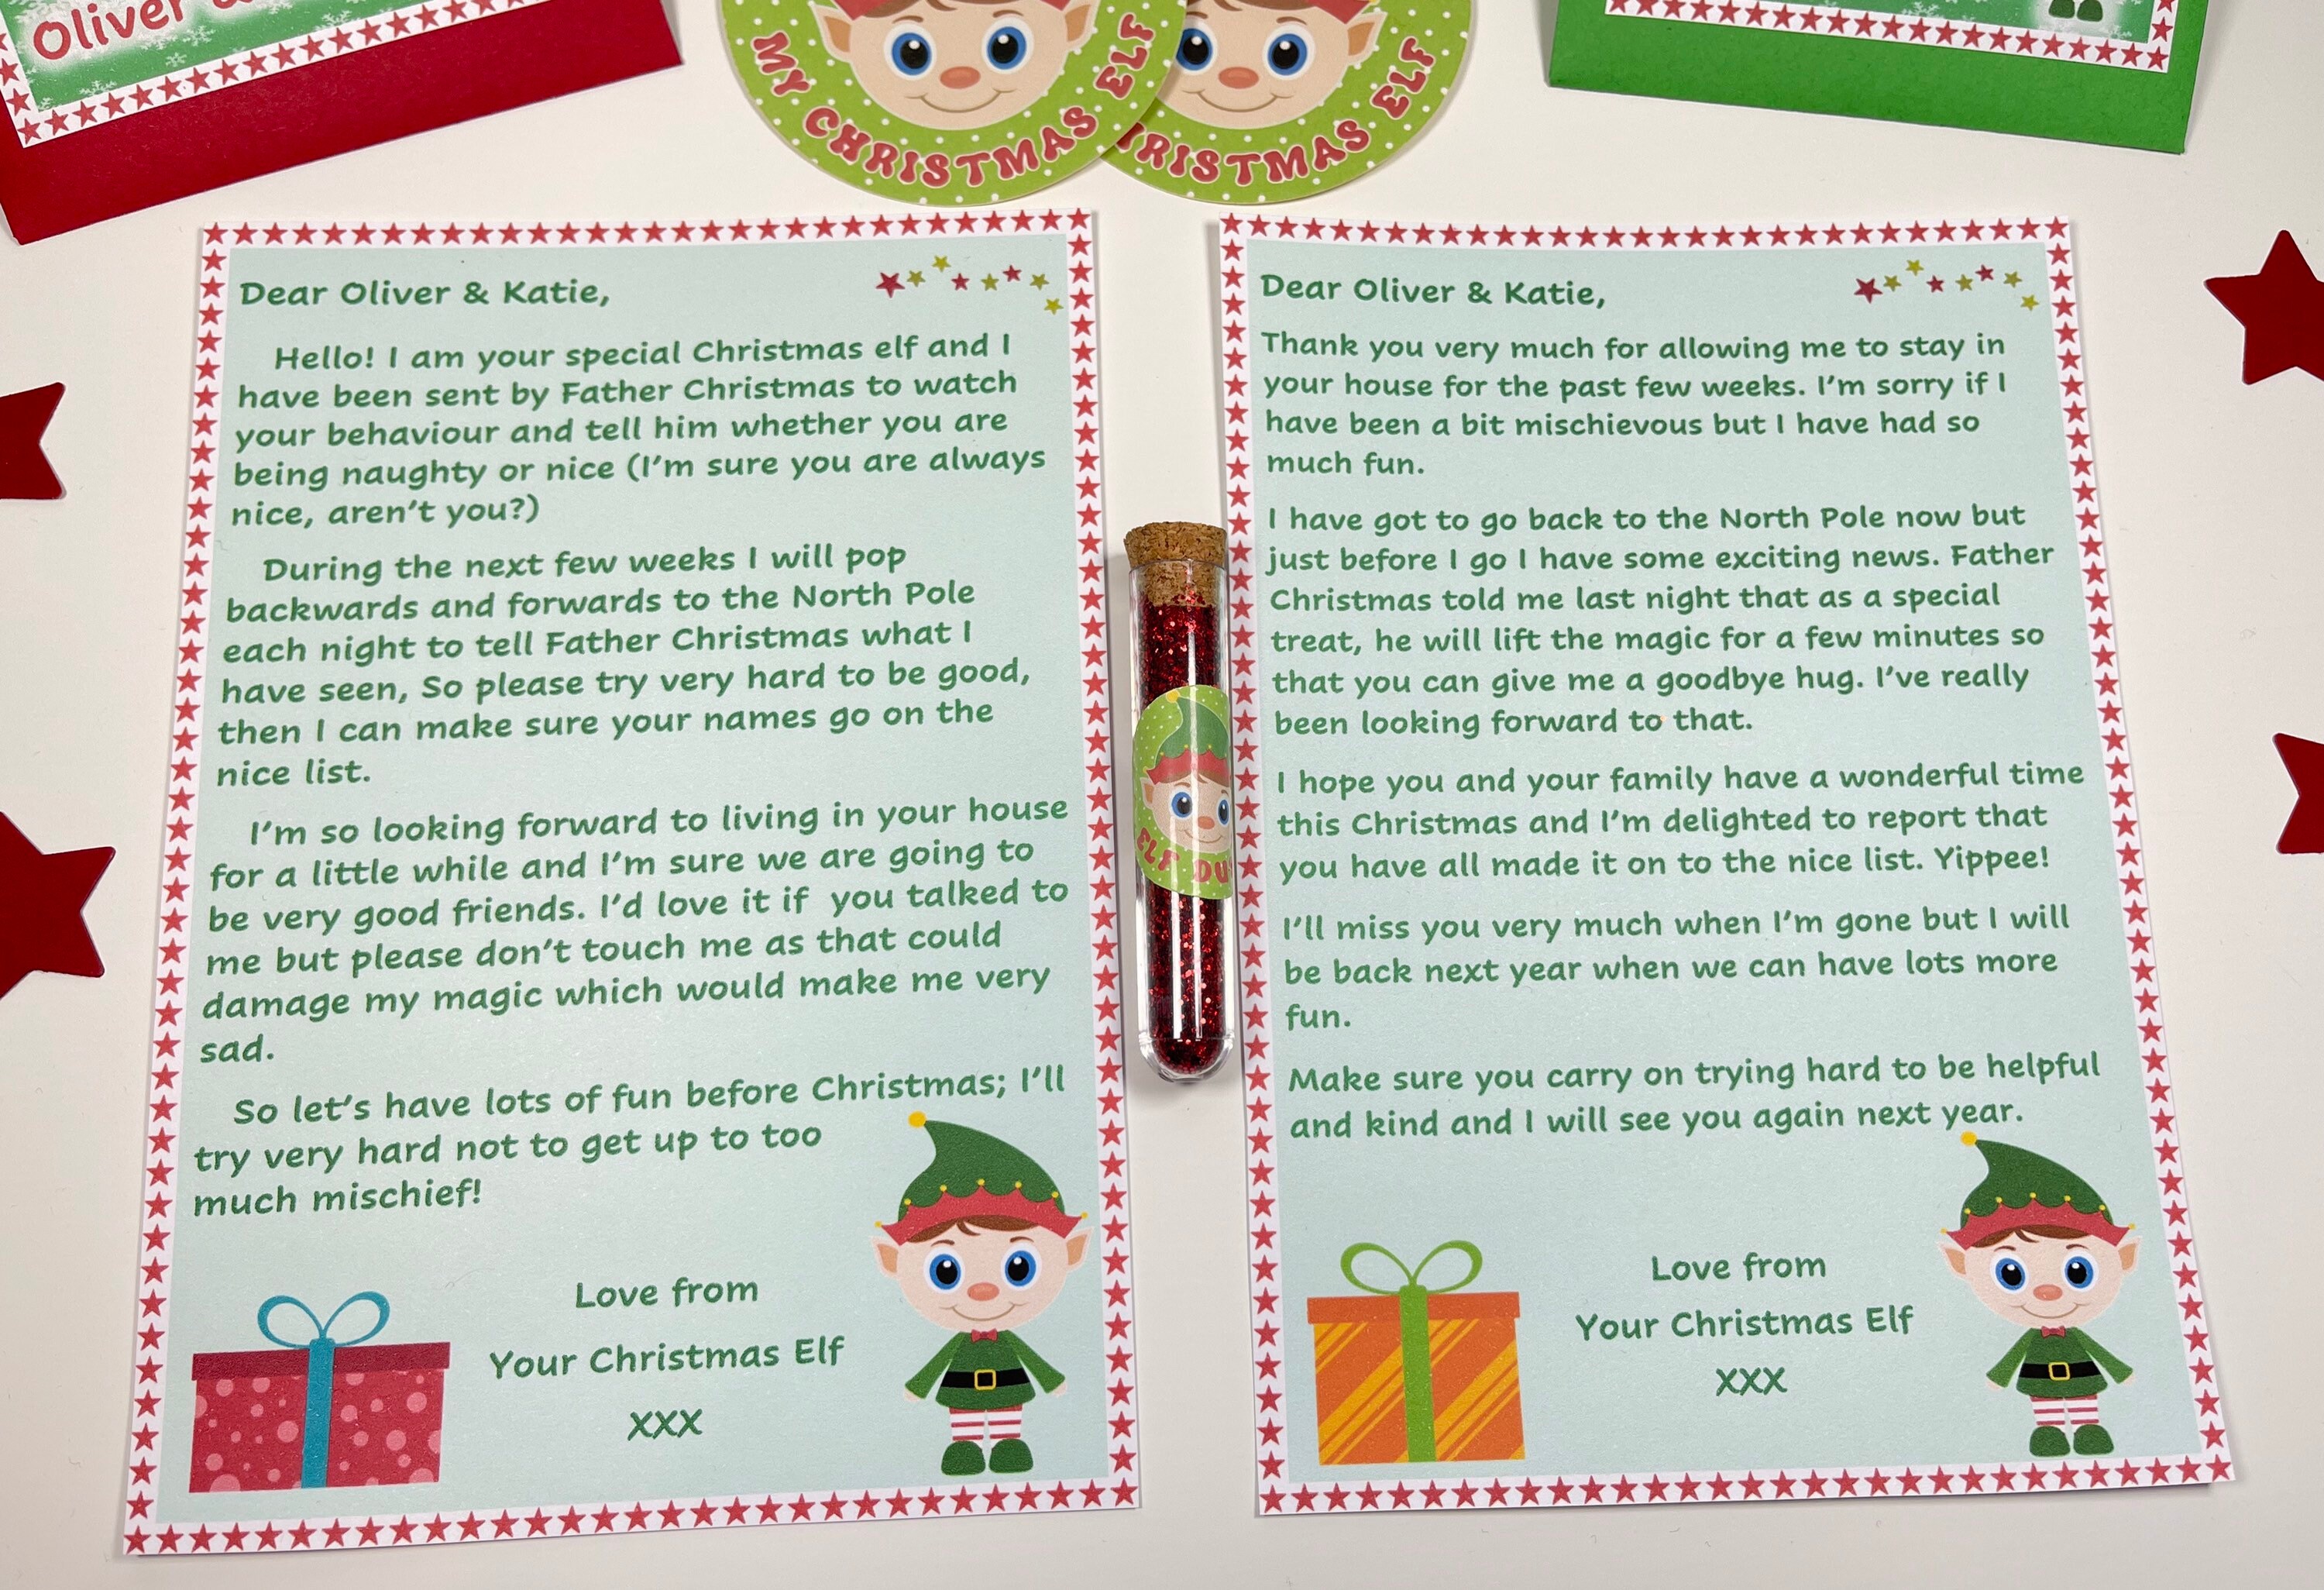 Oliver
MY CHRISTMAS ELF
CHRISTMAS ELF
Dear Oliver & Katie,
Hello! I am your special Christmas elf and I
have been sent by Father Christmas to watch
your behaviour and tell him whether you are
being naughty or nice (I'm sure you are always
nice, aren't you?)
During the next few weeks I will pop
backwards and forwards to the North Pole
each night to tell Father Christmas what I
have seen, So please try very hard to be good,
then I can make sure your names go on the
nice list.
I'm so looking forward to living in your house
for a little while and I'm sure we are going to
be very good friends. I'd love it if  you talked to
me but please don't touch me as that could
damage my magic which would make me very
sad.
So let's have lots of fun before Christmas; I'll
try very hard not to get up to too
much mischief!
Love from
Your Christmas Elf
XXX
ELF DU
Dear Oliver & Katie,
Thank you very much for allowing me to stay in
your house for the past few weeks. I'm sorry if I
have been a bit mischievous but I have had so
much fun.
I have got to go back to the North Pole now but
just before I go I have some exciting news. Father
Christmas told me last night that as a special
treat, he will lift the magic for a few minutes so
that you can give me a goodbye hug. I've really
been looking forward to that.
I hope you and your family have a wonderful time
this Christmas and I'm delighted to report that
you have all made it on to the nice list. Yippee!
I'll miss you very much when I'm gone but I will
be back next year when we can have lots more
fun.
Make sure you carry on trying hard to be helpful
and kind and I will see you again next year.
Love from
Your Christmas Elf
XXX